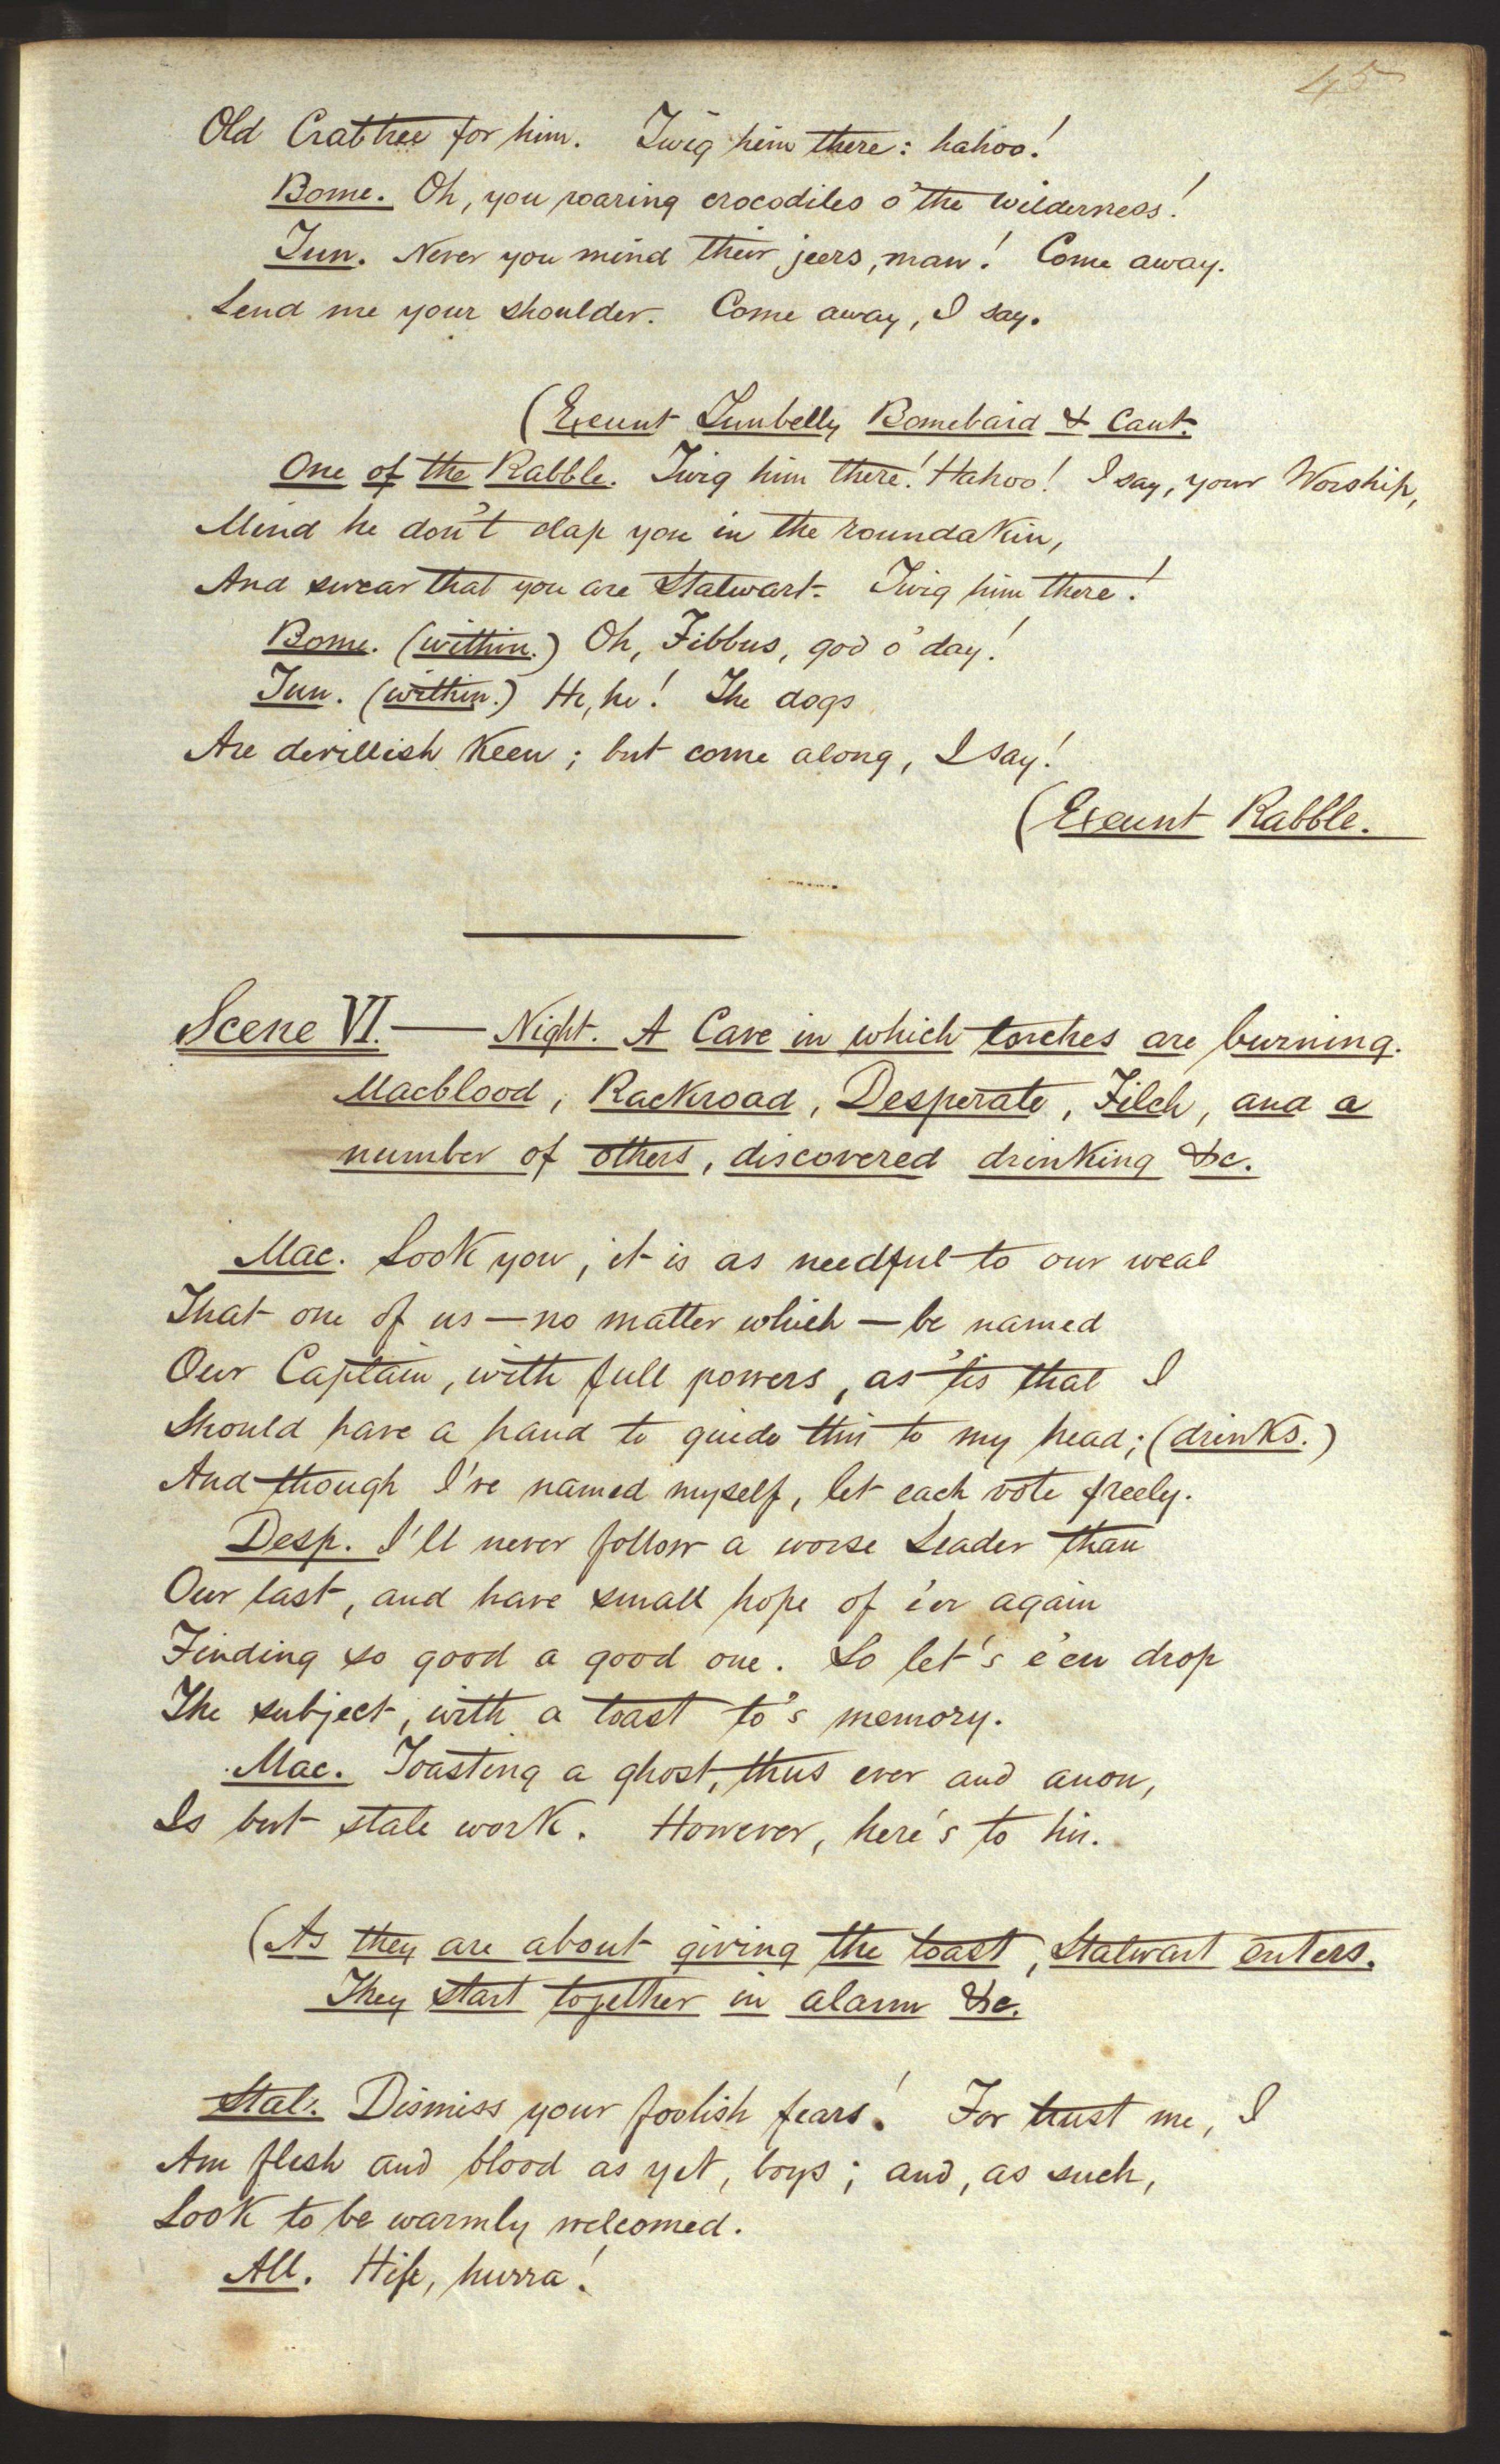 45
Old Crabtree for him. Twig him there: hahoo!
Bome. Oh, you roaring crocodiles o' the wilderness!
Tun. Never you mind their jeers, man! Come away.
Lend me your shoulder. Come away, I say.
(Exeunt Tunbelly Bomebard & Cant.
One of the Rabble. Twig him there! Hahoo! I say, your Worship,
Mind he don't clap you in the roundakin,
And swear that you are Stalwart. Twig him there!
Bome. (within.) Oh, Fibbus, god o' day!
Tun. (within.) He, he! The dogs
Are devillish keen; but come along, I say!
(Exeunt Rabble.
Scene VI.— Night. A Cave in which torches are burning.
Macblood, Rackroad, Desperate, Filch, and a
number of others, discovered drinking &c.
Mac. Look you, it is as needful to our weal
That one of us—no matter which—be named
Our Captain, with full powers, as 'tis that I
Should have a hand to guide this to my head; (drinks.)
And though I've named myself, let each vote freely.
Desp. I'll never follow a worse Leader than
Our last, and have small hope of e'er again
Finding so good a good one. So let's e'en drop
The subject, with a toast to's memory.
Mac. Toasting a ghost, thus ever and anon,
Is but stale work. However, here's to him.
(As they are about giving the toast, Stalwart enters.
They start together in alarm &c.
Stal. Dismiss your foolish fears! For trust me, I
Am flesh and blood as yet, boys; and, as such,
Look to be warmly welcomed.
All. Hip, hurra!